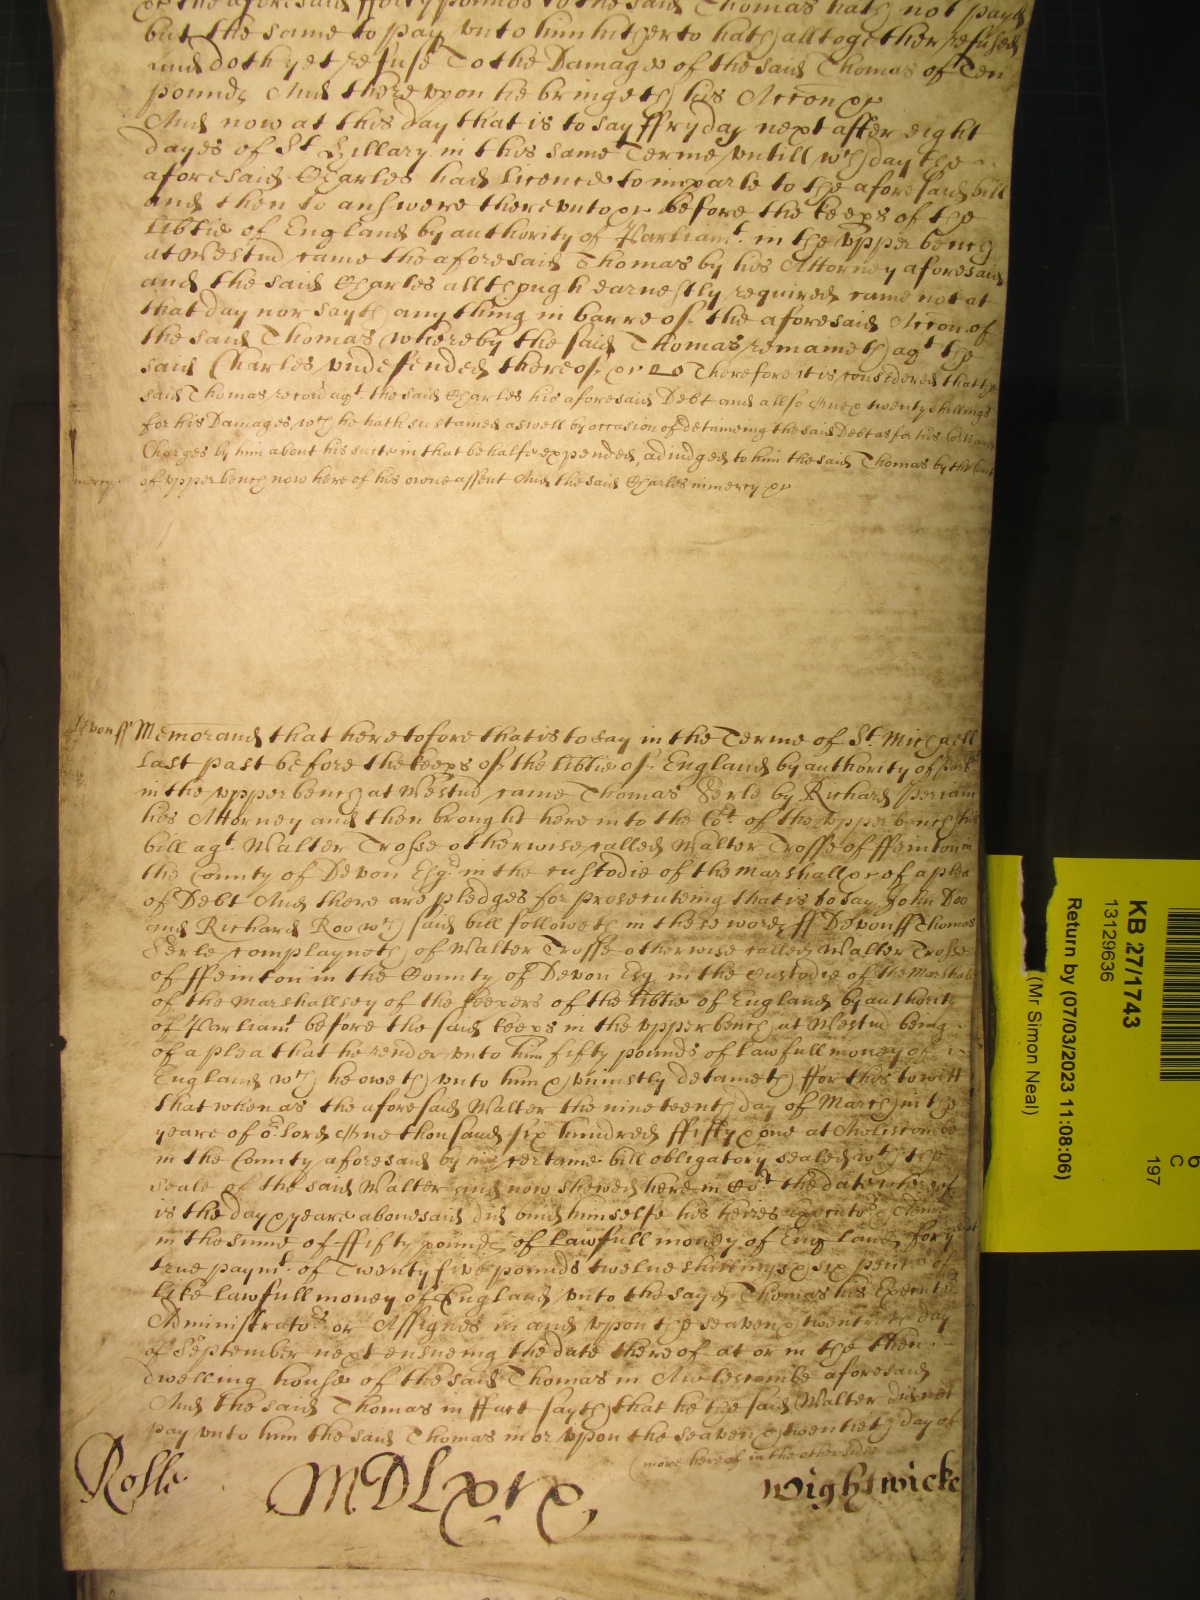 or the aforesaid ffifty pounds to the said Thomas hath not payd
but the same to pay vnto him hitherto hath alltogether refused
and doth yet refuse To the Damage of the said Thomas of Ten
pounds And therevpon he bringeth his Accon &c
And now at this day that is to say ffryday next after eight
dayes of St Hillary in this same Terme vntill wch day the
aforesaid Charles had licence to imparle to the aforesaid bill
and then to answere therevnto &c before the keeps of the
libtie of England by authority of Parliamt in the vpper bench
at Westm̃ came the aforesaid Thomas by his Attorney aforesaid
and the said Charles allthough earnestly required came not at
that day nor sayth any thing in barre of the aforesaid Accon of
the said Thomas whereby the said Thomas remaineth agt the
said Charles vndefended thereof &c Therefore it is considered that the
said Thomas recov agt the said Charles his aforesaid Debt and allso twenty shillings
for his Damages wch he hath sustained aswell by occasion of detaineing the said Debt as for his Costs and
Charges by him about his suite in that behalfe expended adiudged to him the said Thomas by the Court
mercy. of vpper bench now here of his owne assent And the said Charles in mercy &c
Devon ss Memorand that heretofore that is to say in the Terme of St Michaell
last past before the keeps of the libtie of England by authority of Parlt
in the vpper bench at Westm̃ came Thomas Serle by Richard
his Attorney and then brought here into the Cot of the vpper bench his
bill agt Walter Trosse otherwise called Walter Trosse of ffeniton in
the County of Devon Esqr in the custodie of the Marshall &c of a plea
of Debt And there are pledges for prosecuteing that is to say John Doo
and Richard Roo wch said bill followeth in these words ss Devon ss Thomas
Serle complayneth of Walter Trosse otherwise called Walter Trosse
of ffeniton in the County of Devon Esq in the Custodie of the Marshall
of the Marshallsey of the keepers of the libtie of England by authority
of Parliamt before the said keeps in the vpper bench at Westm̃ being
of a plea that he render vnto him fifty pounds of lawfull money of
England wch he oweth vnto him & vniustly detaineth ffor this to witt
that whenas the aforesaid Walter the nineteenth day of March in the
yeare of or Lord One thousand six hundred ffifty & one at Awliscombe
in the County aforesaid by his certaine bill obligatory sealed wth the
seale of the said Walter and now shewed here in Cort the date whereof
is the day & yeare abouesaid did bind himselfe his heires executors
in the sume of ffifty pounds of lawfull money of England for ye
true paymt of Twenty five pounds twelue shillings & six pence of
like lawfull money of England vnto the sayd Thomas his Executors
Administrators or Assignes in and vpon the seaven & twentieth day
of September next ensueing the date thereof at or in the then
dwelling house of the said Thomas in Awlescombe aforesaid
And the said Thomas in ffact sayth that he the said Walter did not
pay vnto him the said Thomas in or vpon the seaven & twentieth day of
(more hereof in the other side
Rolle MDLxix Wightwicke
KB 27/1743
13129636
Return by (07/03/2023 11:08:06)
(Mr Simon Neal)
6
C
197